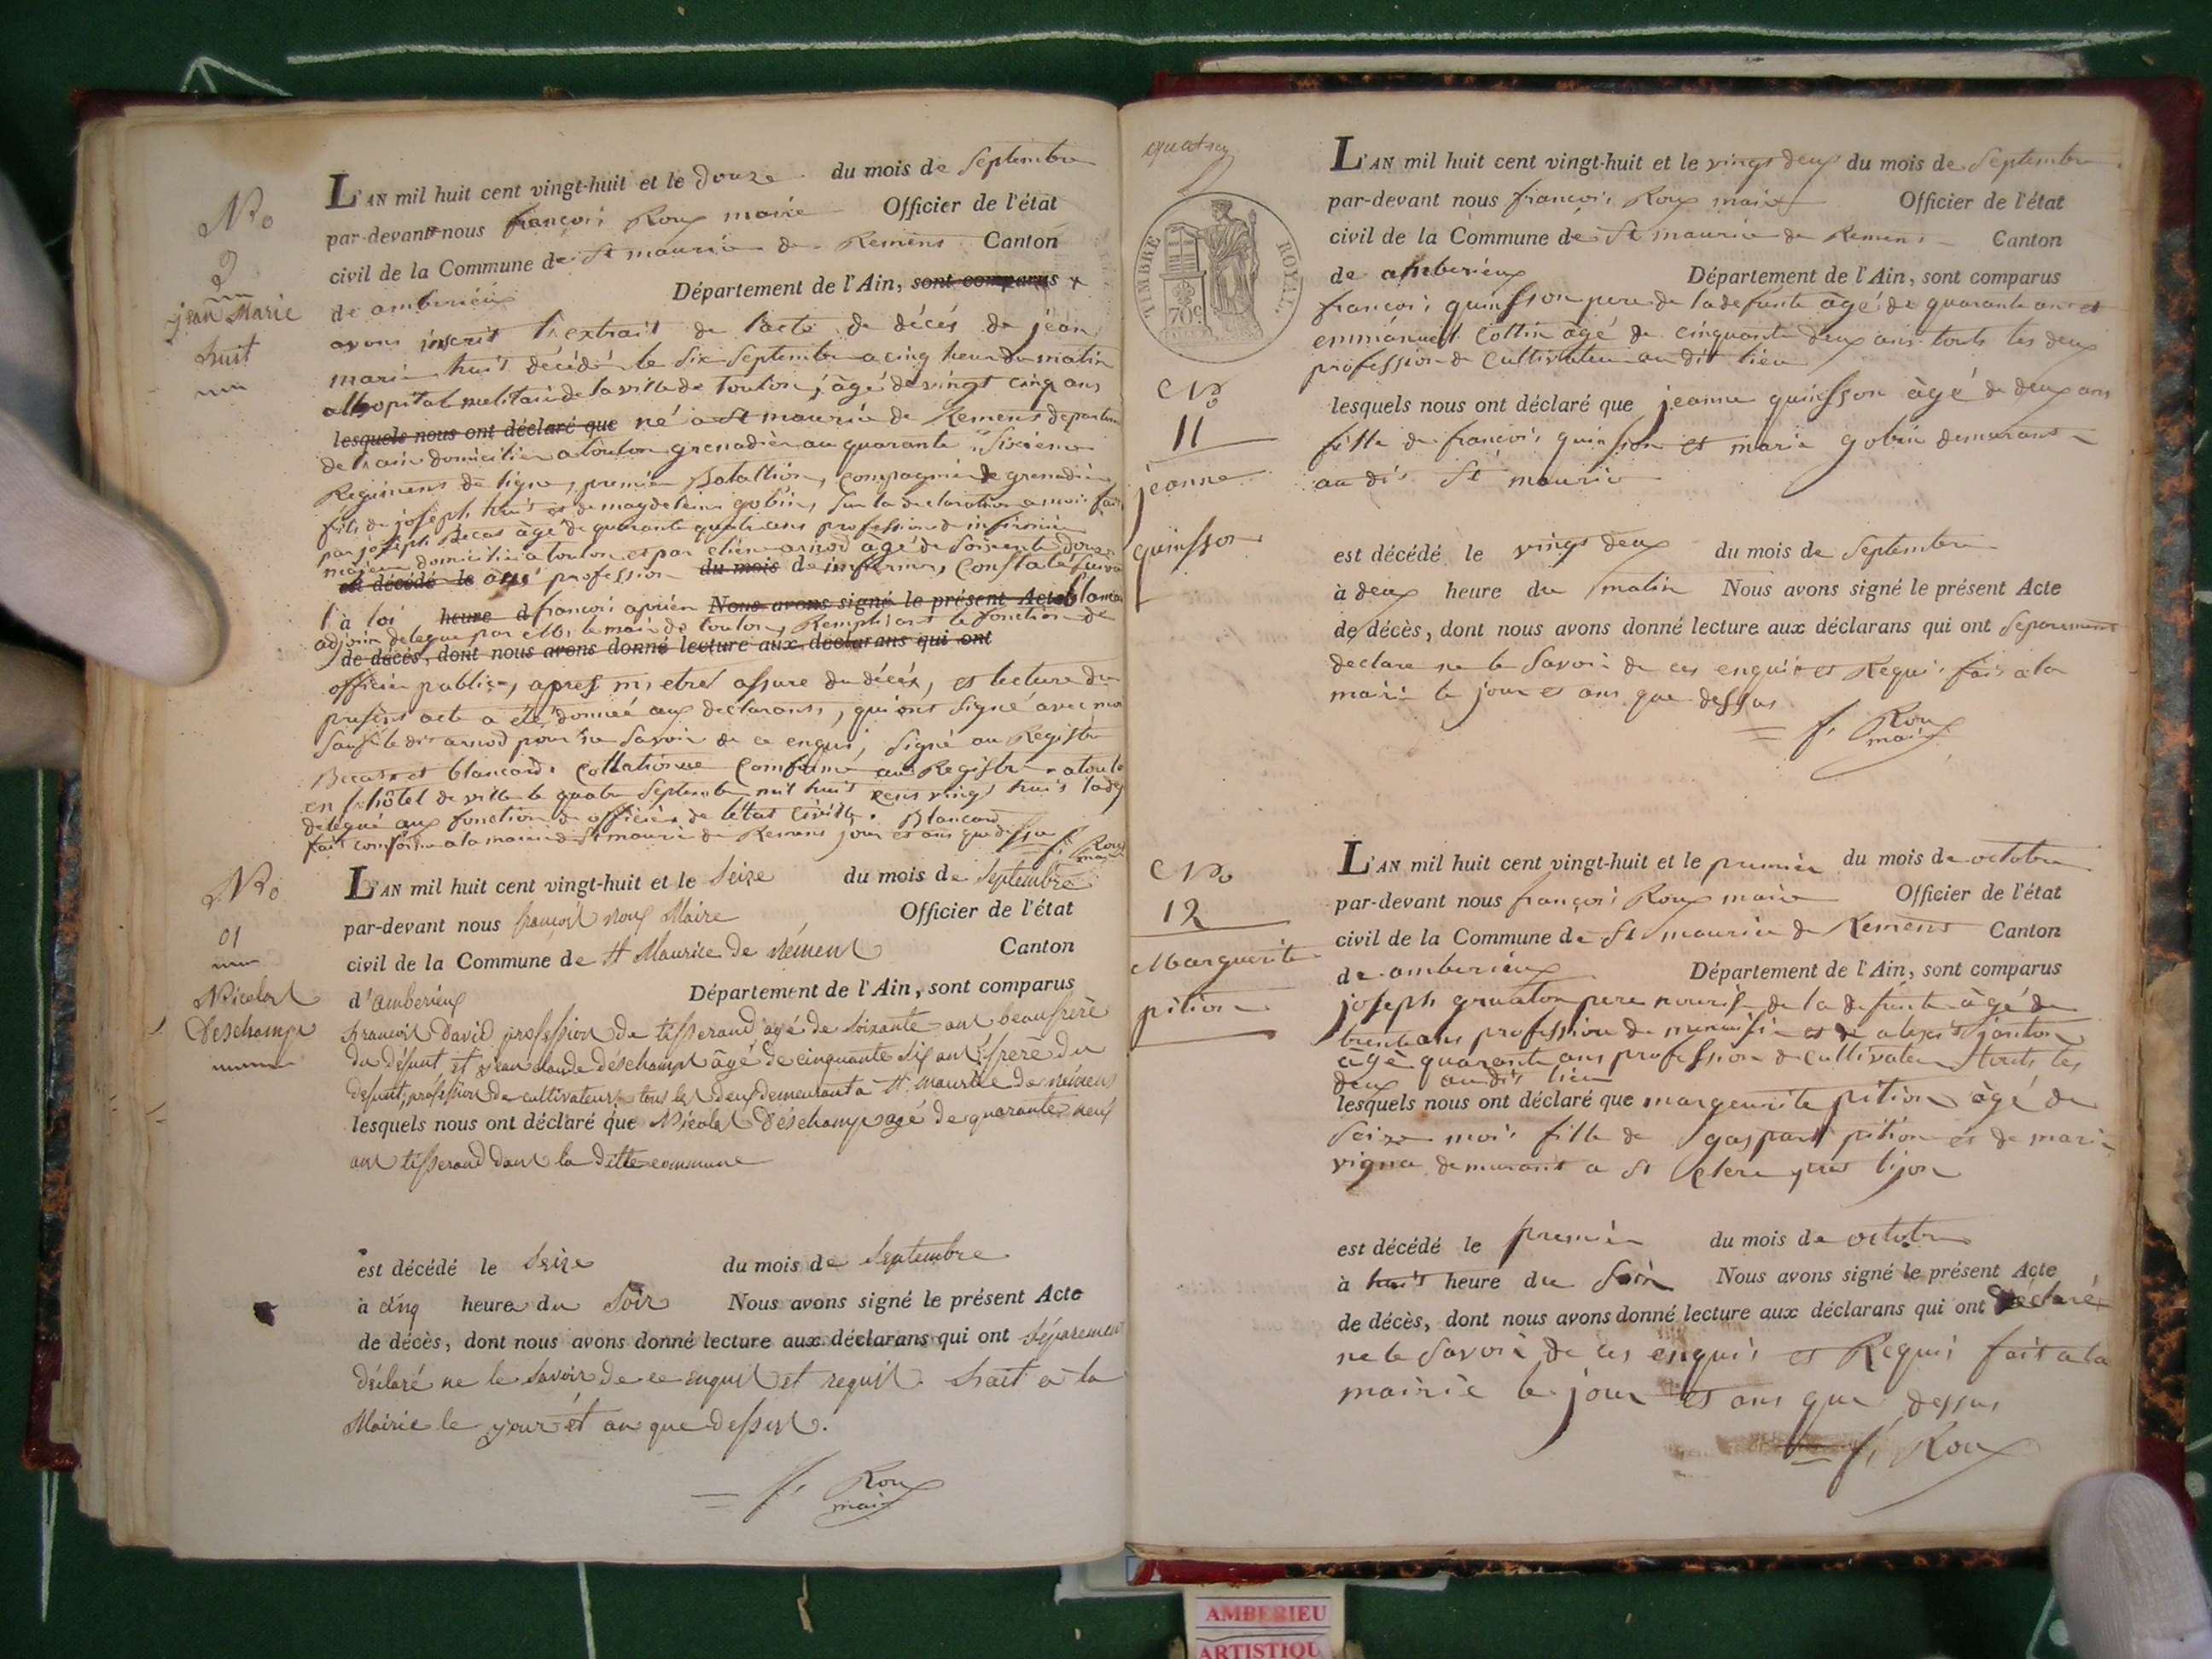 No
9
jean Marie
huit
L'AN mil huit cent vingt-huit et le douze du mois de Septembre
par-devant nous françois Roux maire Officier de l'état
civil de la Commune de St maurice de Remens Canton
de amberieux Département de l'Ain, sont comparus x
avons inscrit l'extrait de l'acte de décés de jean
marie huit décédé le six Septembre a cinq heur du matin
a l'hopital militaire de la ville de toulon, âgé de vingt cinq ans
lesquels nous ont déclaré que né a St maurice de Remens departem
de l'ain domicilier a toulon grenadier au quarante Sixieme
Regiment de ligne, premier Bataillion, Compagnie de grenadier
fils de joseph huit et de magdeleine gobin, Sur la declaration a moi fait
par joseph Becas âgé de quarante quatre ans profession de infirmier
majeur domicilie a toulon et par etienne arnod âgé de Soixente douze
est décédé le ans profession du mois de infirmier, Constaté Suiva
l à loi heure d françois Nous avons signé le présent Acte
adjoin delegue par Mr le maire de toulon, Remplisant le fonction de
de décès, dont nous avons donné lecture aux déclarans qui ont
officier public, apres m'etre assure du décés, et lecture du
present acte a été donnée aux declarans, qui ont Signé avec moi
Sauf le dit arnod pour ne Savoir de ce enquis, Signé au Registre
Becas et blancard. Collationne Comforme au Registre a toulo
en l'hôtel de ville le quatre Septembre mil huit cens vingt huit l'adj
delegué aux fonction de officier de l'état Civille. Blancard
fait conforme a la mairie de St maurice de Remens jour et ans que dessu f. Roux
maire
No
10
Nicolas
Deschamps
L'AN mil huit cent vingt-huit et le Seize du mois de Septembre
par-devant nous françois roux Maire Officier de l'état
civil de la Commune de St Maurice de rémens Canton
d'amberieux Département de l'Ain, sont comparus
francois David profession de tisserand agé de soixante ans beaufrère
du défunt et jean claude déschamps âgé de cinquante six ans frere du
defunt, profession de cultivateurs tous les deux demeurant a St maurice de rémens
lesquels nous ont déclaré que Nicolas Déschamps agé de quarante neuf
ans tisserand dans la ditte commune
est décédé le Seize du mois de Septembre
à cinq heure du Soir Nous avons signé le présent Acte
de décès, dont nous avons donné lecture aux déclarans qui ont séparement
déclaré ne le savoir de ce enquis et requis. fait a la
Mairie le jour et an que dessus.
f. Roux
maire
TIMBRE ROYAL
70c.
No
11
jeanne
quinsson
L'AN mil huit cent vingt-huit et le vingt deux du mois de Septembre
par-devant nous françois Roux maire Officier de l'état
civil de la Commune de St maurice de Remens Canton
de amberieux Département de l'Ain, sont comparus
francois quinsson pere de la defunte âgé de quarante ans et
emmanuel Cottin âgé de cinquante deux ans touts les deux
profession de Cultivateur au dit lieu
lesquels nous ont déclaré que jeanne quinsson âgé de deux ans
fille de francois quinsson et marie gobin demurant
au dit St maurice
est décédé le vingt deux du mois de Septembre
à deux heure du matin Nous avons signé le présent Acte
de décès, dont nous avons donné lecture aux déclarans qui ont Separement
declare ne le Savoir de ces enquis et Requis fait a la
mairi le jour et ans que dessus
f. Roux
maire
No
12
Marguerite
pition
L'AN mil huit cent vingt-huit et le premier du mois de octobre
par-devant nous françois Roux maire Officier de l'état
civil de la Commune de St maurice de Remens Canton
de amberieux Département de l'Ain, sont comparus
joseph gruaton pere nouris de la defunte âgé de
trente ans profession de et de alexis janton
âgé quarante ans profession de cultivateur touts les
deux au dit lieu
lesquels nous ont déclaré que margeurite pition âgé de
Seize mois fille de gaspart pition et de marie
vigna demurant a St
est décédé le premier du mois de octobre
à huit heure du Soir Nous avons signé le présent Acte
de décès, dont nous avons donné lecture aux déclarans qui ont declaré
ne le Savoir de ces enquis et Requis fait a la
mairie le jour et ans que dessus
f. Roux
AMBERIEU
ARTISTIQU